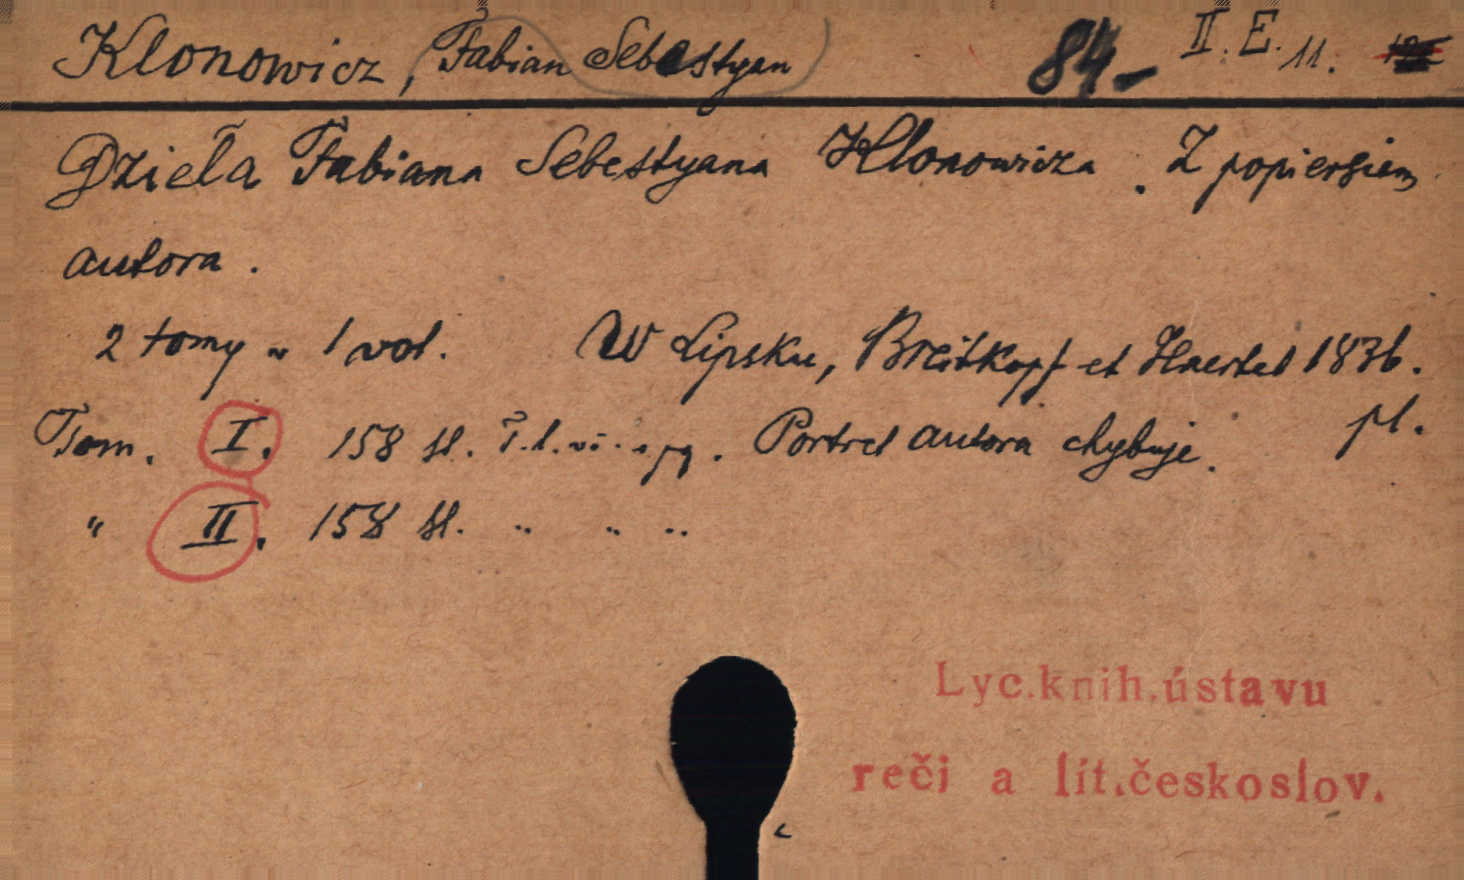 Klonowicz, Fabian Sebestyan 84- II. E. 11.
Dzieła Fabiana Sebestyana Klonowicza. Z popiersiem
autora.
2 tomy w 1 vol. W Lipsku, Breitkopf et Haertel 1836.
Tom. I. 158 st. Portret autora chybuje. pl.
" II. 158 st. " " "
Lyc.knih.ústavu
reči a lit.českoslov.